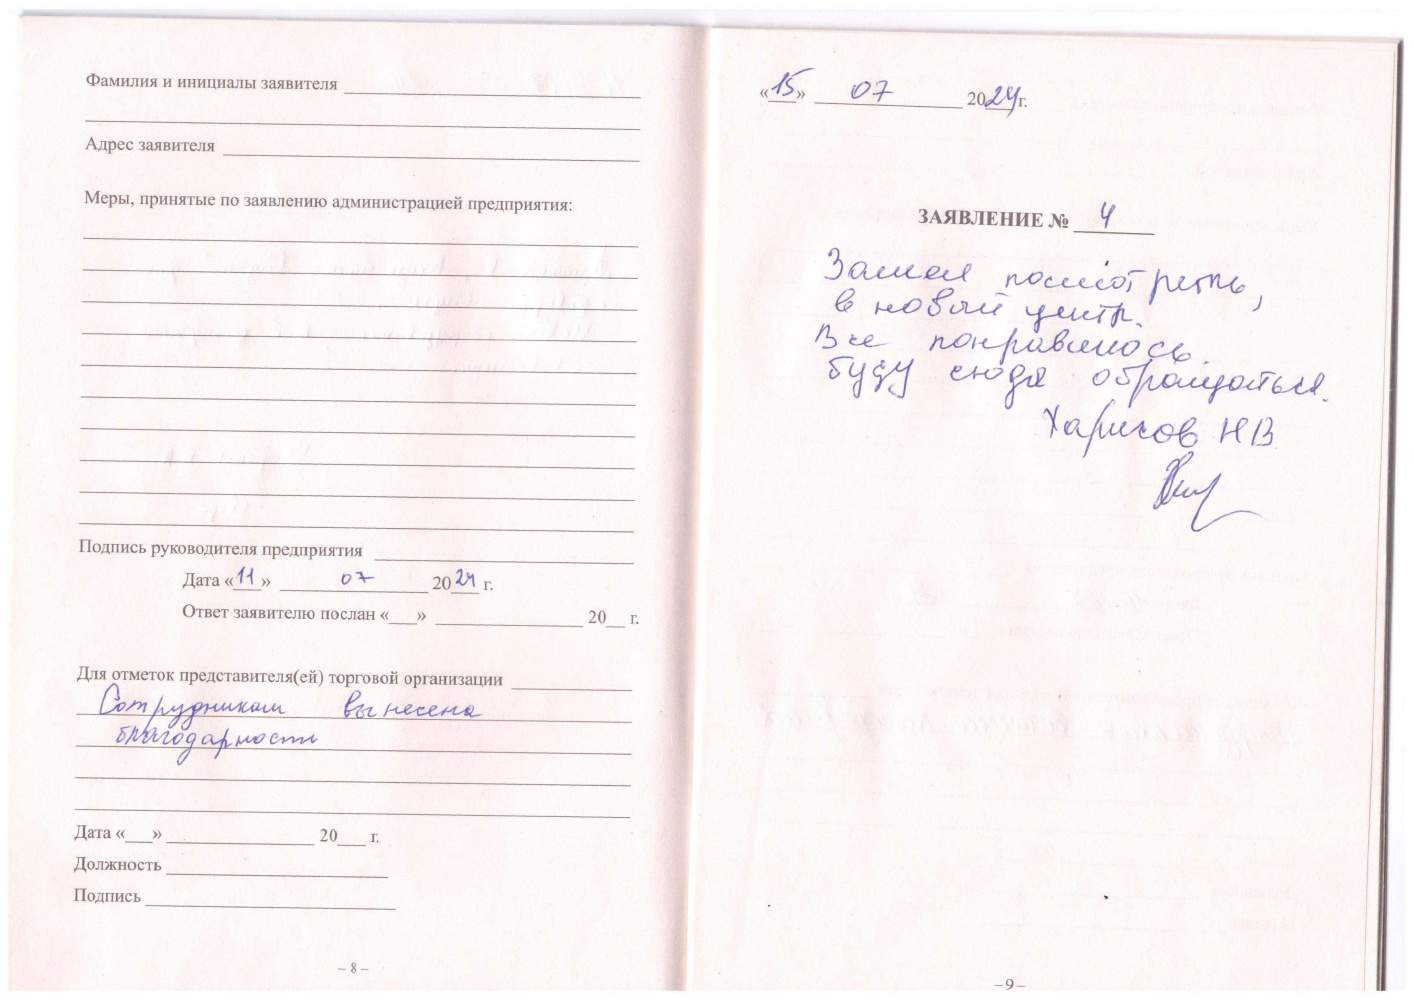 Фамилия и инициалы заявителя
Адрес заявителя
Меры, принятые по заявлению администрацией предприятия:
Подпись руководителя предприятия
Дата «11» 07 2024 г.
Ответ заявителю послан «___» 20__ г.
Для отметок представителя(ей) торговой организации
Сотрудникам вынесена
благодарности
Дата «___» 20___ г.
Должность
Подпись
– 8 –
«15» 07 2024г.
ЗАЯВЛЕНИЕ № 4
Зашел посмотреть,
в новый центр.
Все понравилось.
буду сюда обращаться.
Харисов НВ
–9–